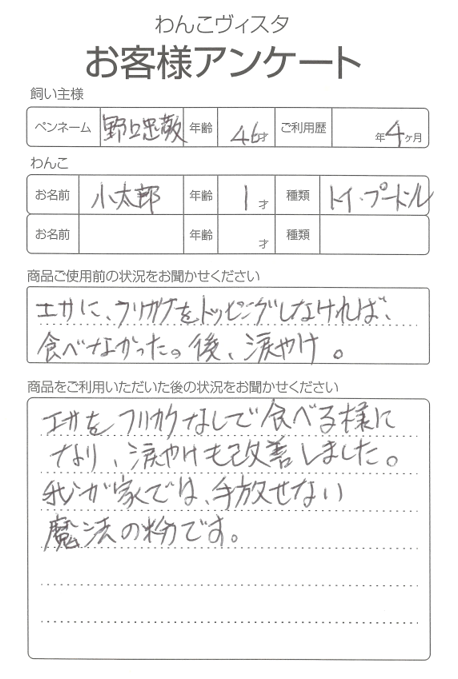 わんこヴィスタ
お客様アンケート
飼い主様
ペンネーム 野上忠敬 年齢 46才 ご利用歴 年4ヶ月
わんこ
お名前 小太郎 年齢 1才 種類 トイ・プードル
お名前 年齢 才 種類
商品ご使用前の状況をお聞かせください
エサに、フリカケをトッピングしなければ、
食べなかった。後、涙やけ。
商品をご利用いただいた後の状況をお聞かせください
エサを フリカケなしで食べる様に
なり、涙やけも改善しました。
我が家では、手放せない
魔法の粉です。